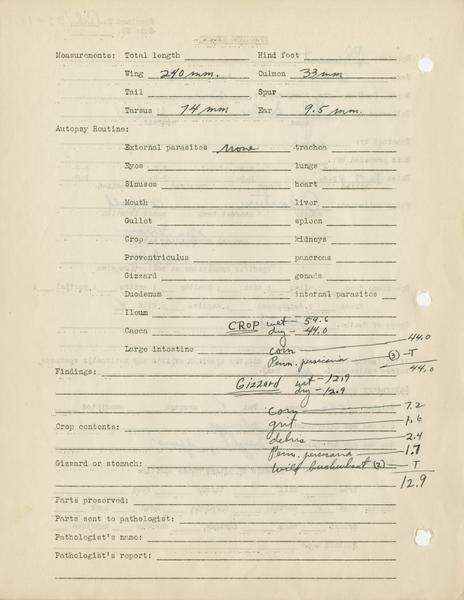 Measurements: Total length Hind foot
Wing 240 mm. Culmen 33 mm
Tail Spur
Tarsus 74 mm Ear 9.5 mm.
Autopsy Routine:
External parasites none trachea
Eyes lungs
Sinuses heart
Mouth liver
Gullet spleen
Crop kidneys
Proventriculus pancreas
Gizzard gonads
Duodenum internal parasites
Ileum
CROP wet - 59.6
Caeca dry - 44.0
Large intestine corn 44.0
Penn. persicaria (3) - T
44.0
Findings:
Gizzard wet - 12.9
dry - 12.9
corn 7.2
Crop contents: grit 1.6
debris 2.4
Penn. persicaria 1.7
Gizzard or stomach: wild buckwheat (2) - T
12.9
Parts preserved:
Parts sent to pathologist:
Pathologist's name:
Pathologist's report: